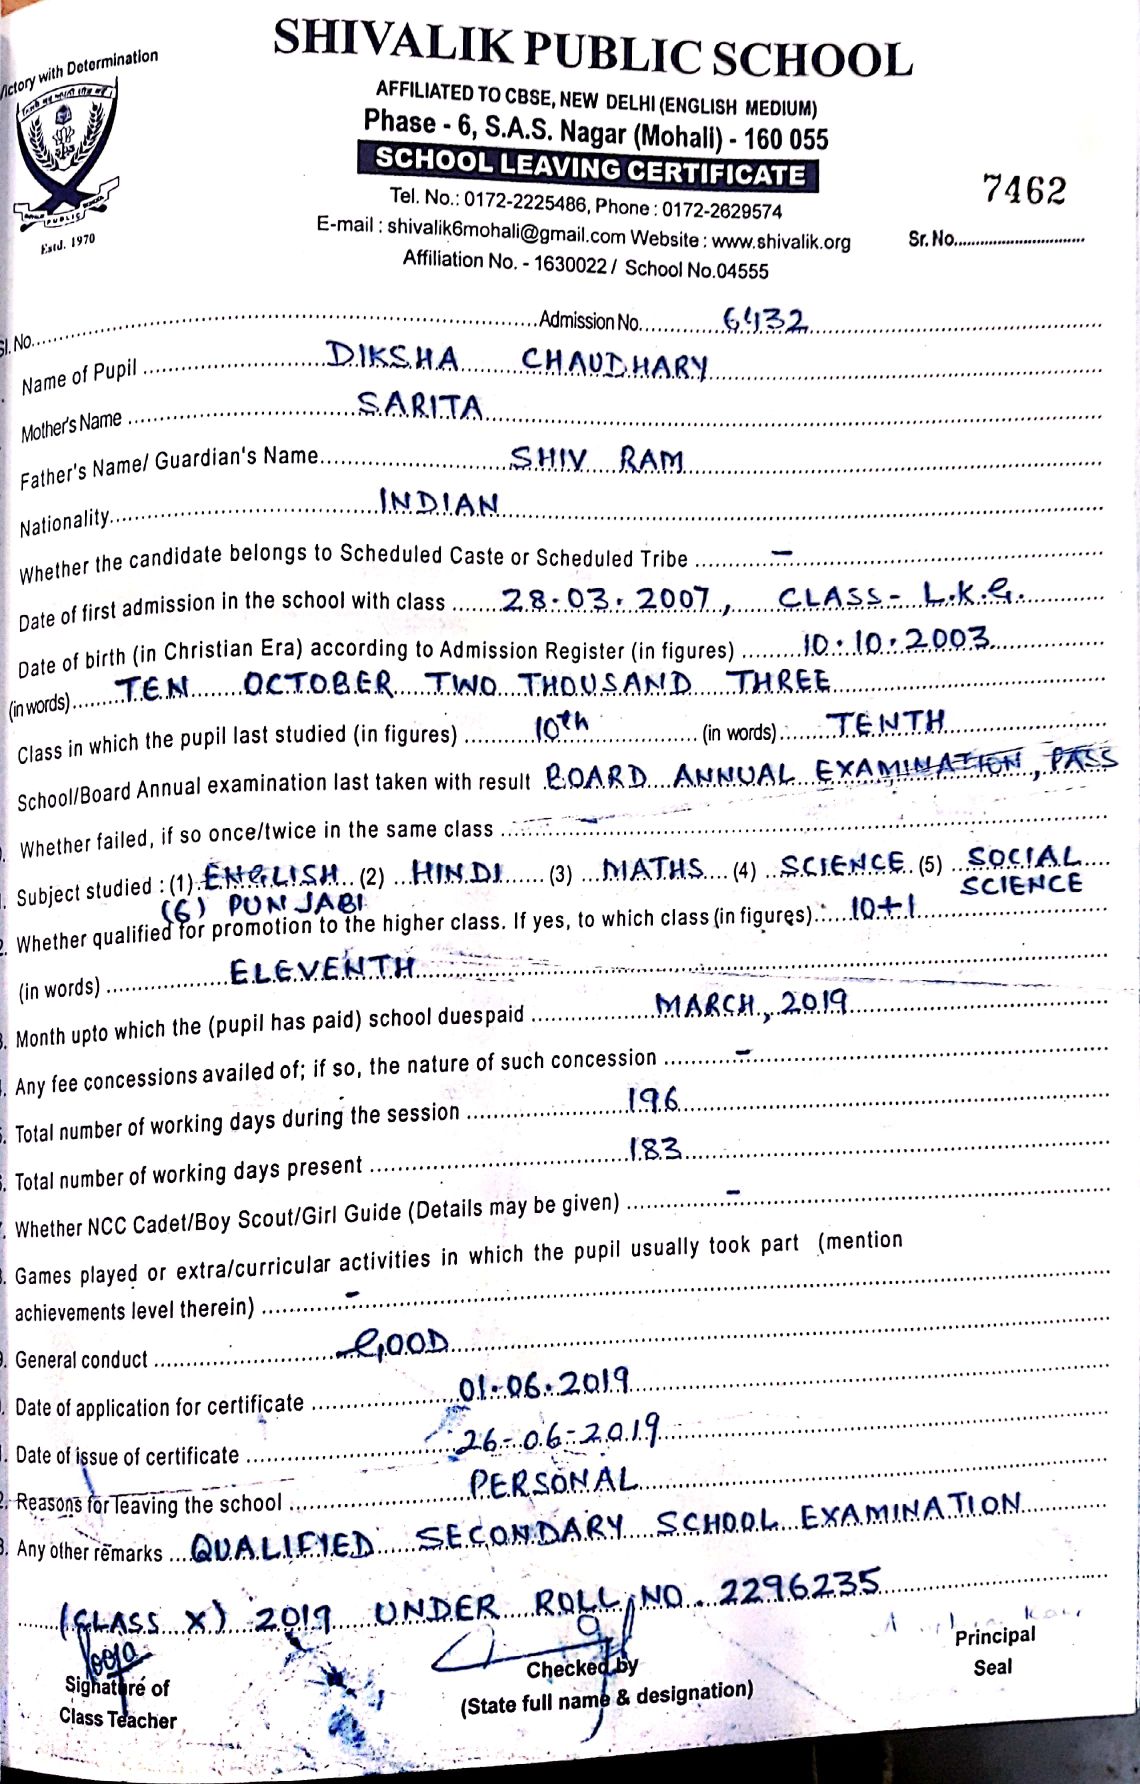 Victory with Determination
SHIVALIK PUBLIC SCHOOL
AFFILIATED TO CBSE, NEW DELHI (ENGLISH MEDIUM)
Phase - 6, S.A.S. Nagar (Mohali) - 160 055
SCHOOL LEAVING CERTIFICATE
Tel. No.: 0172-2225486, Phone : 0172-2629574
E-mail : shivalik6mohali@gmail.com Website : www.shivalik.org
Affiliation No. - 1630022 / School No.04555
PUBLIC
Estd. 1970
7462
Sr. No.
Sl. No. Admission No. 6432
Name of Pupil DIKSHA CHAUDHARY
Mother's Name SARITA
Father's Name/ Guardian's Name SHIV RAM
Nationality INDIAN
Whether the candidate belongs to Scheduled Caste or Scheduled Tribe –
Date of first admission in the school with class 28.03.2007, CLASS- L.K.G.
Date of birth (in Christian Era) according to Admission Register (in figures) 10.10.2003
(in words) TEN OCTOBER TWO THOUSAND THREE
Class in which the pupil last studied (in figures) 10th (in words) TENTH
School/Board Annual examination last taken with result BOARD ANNUAL EXAMINATION, PASS
Whether failed, if so once/twice in the same class –
Subject studied : (1) ENGLISH (2) HINDI (3) MATHS (4) SCIENCE (5) SOCIAL SCIENCE
(6) PUNJABI
Whether qualified for promotion to the higher class. If yes, to which class (in figures) 10+1
(in words) ELEVENTH
Month upto which the (pupil has paid) school duespaid MARCH, 2019
Any fee concessions availed of; if so, the nature of such concession –
Total number of working days during the session 196
Total number of working days present 183
Whether NCC Cadet/Boy Scout/Girl Guide (Details may be given) –
Games played or extra/curricular activities in which the pupil usually took part (mention
achievements level therein) –
General conduct GOOD
Date of application for certificate 01-06.2019
Date of issue of certificate 26-06-2019
Reasons for leaving the school PERSONAL
Any other remarks QUALIFIED SECONDARY SCHOOL EXAMINATION
(CLASS X) 2019 UNDER ROLL NO. 2296235
Pooja
Signature of
Class Teacher
Checked by
(State full name & designation)
Principal
Seal